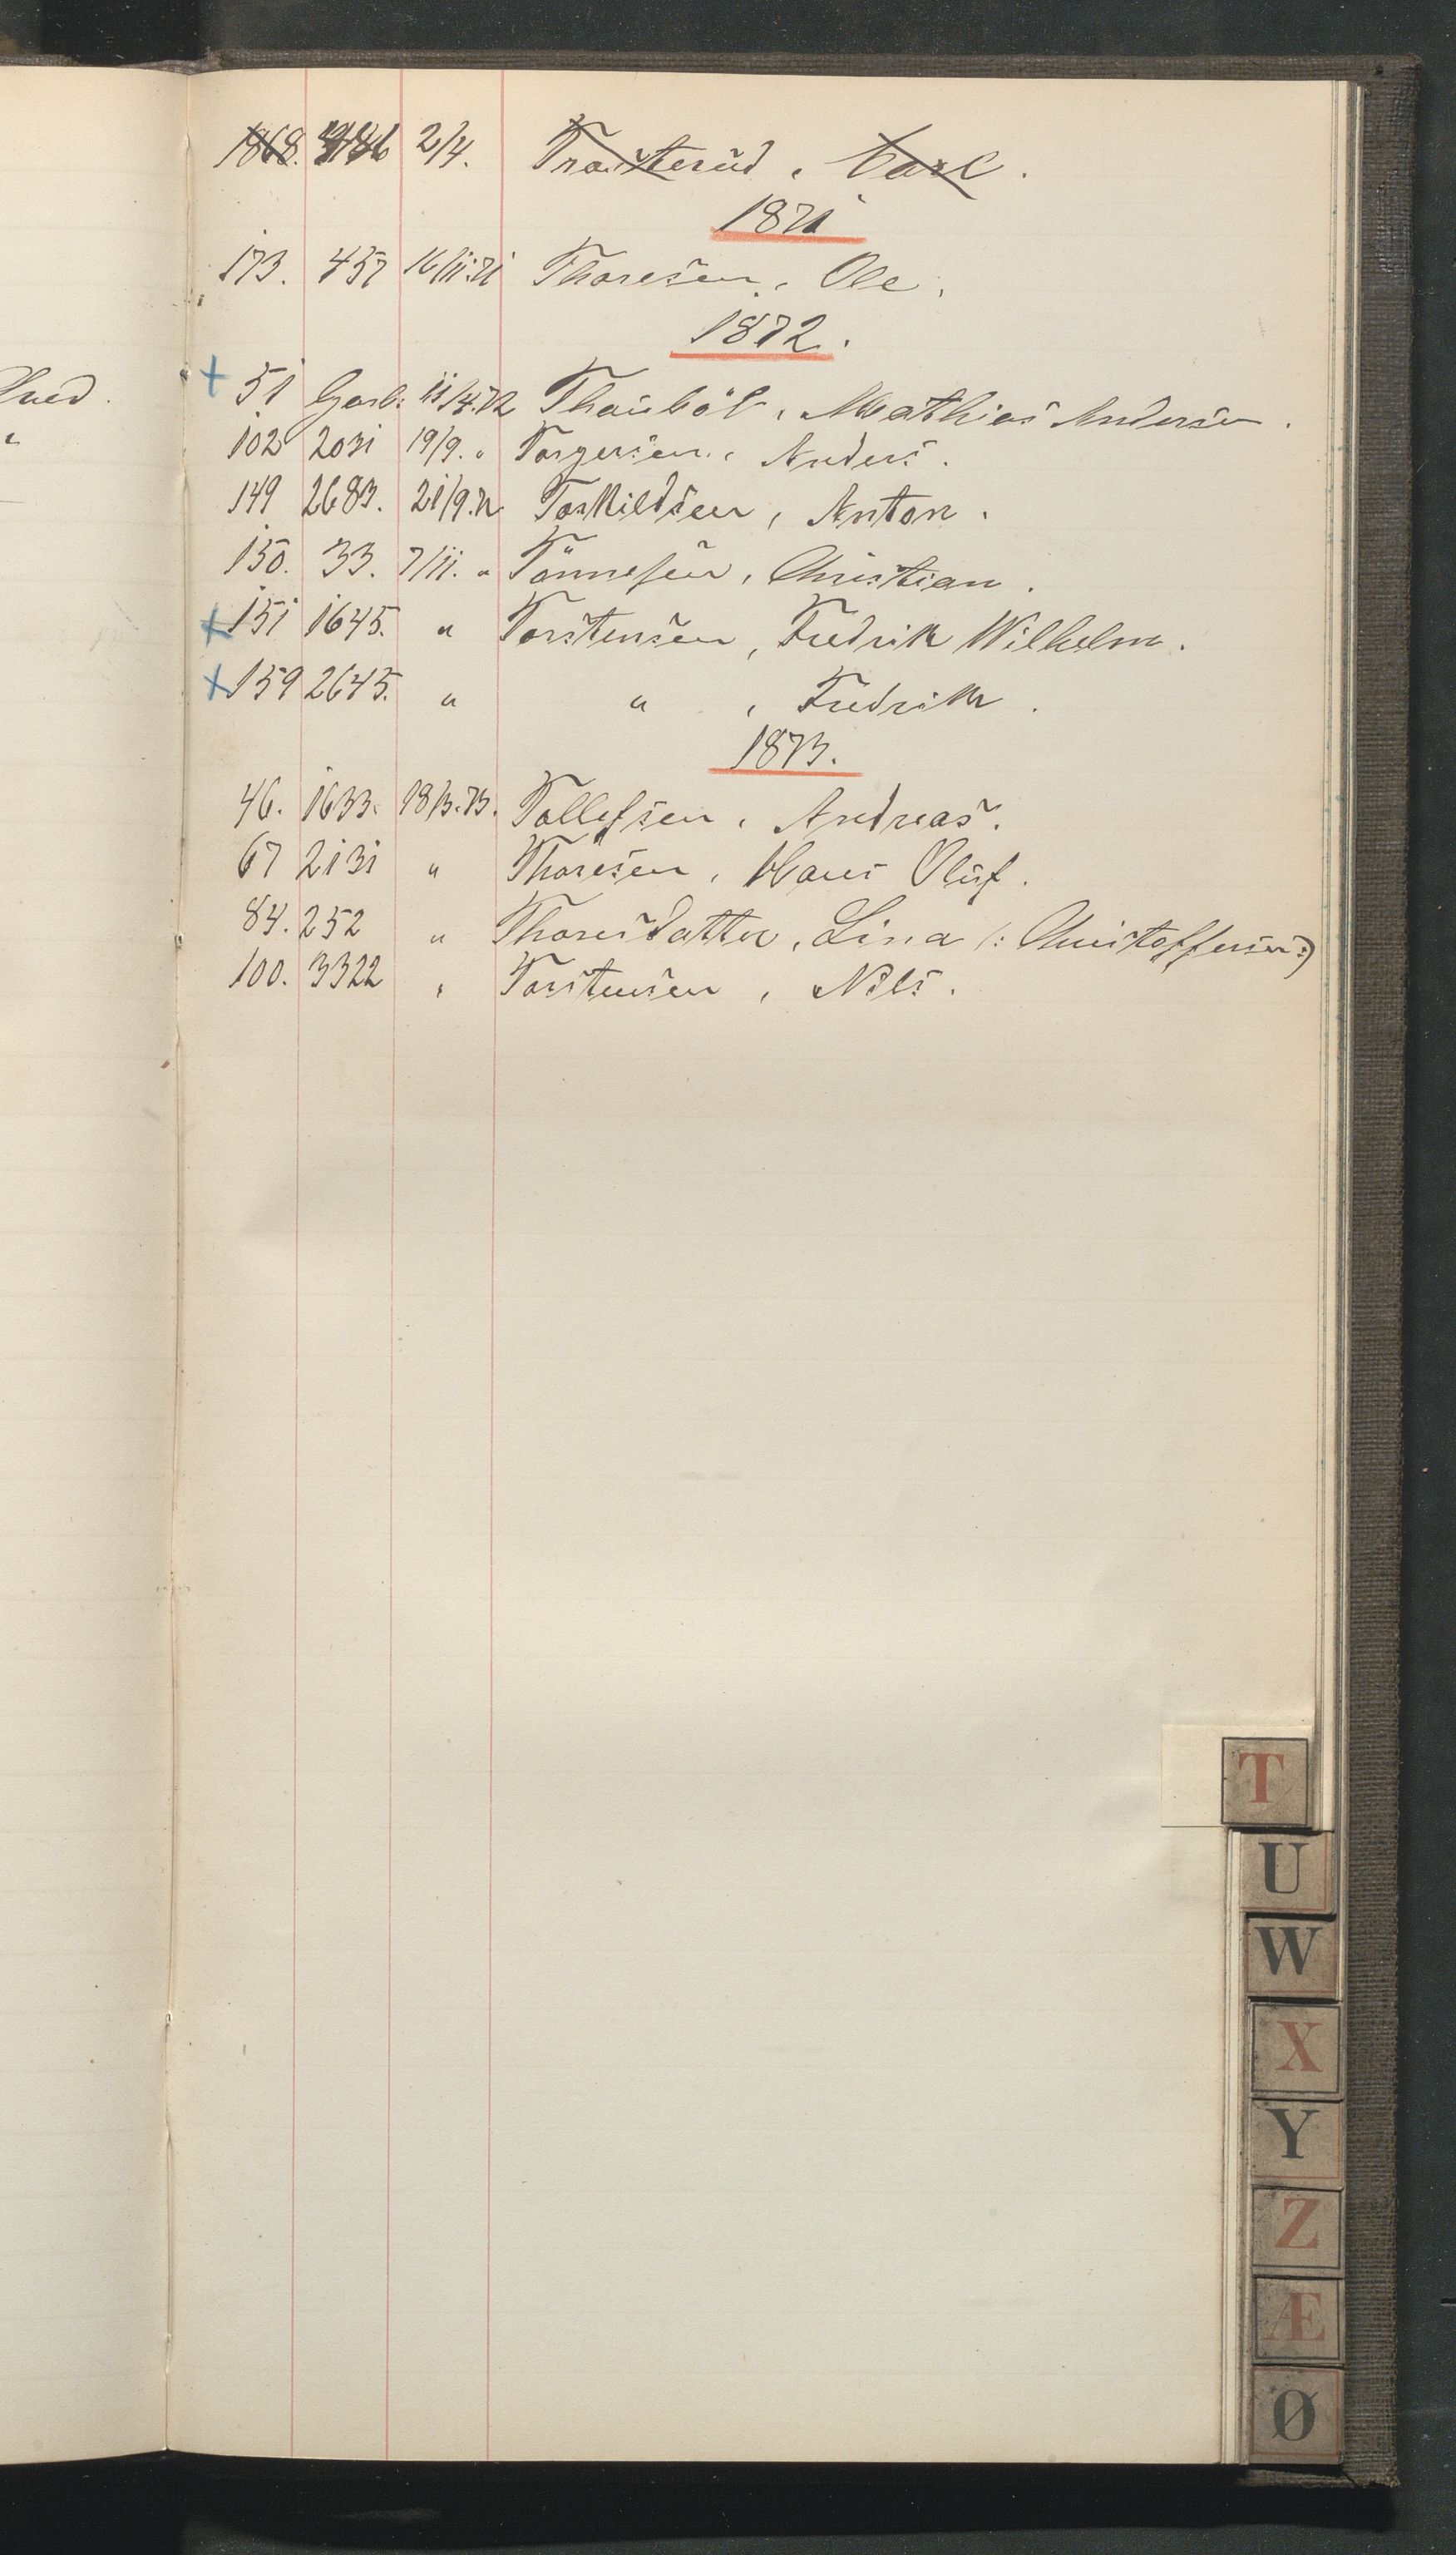 1868. 4186 2/4. Trosterud, Carl.
1871
173. 457 16/11.71 Thoresen, Ole.
1872.
+ 51 Garb: 11/4.72 Thorsböl, Mathias Andersen.
102 2031 19/9. " Torgersen, Anders.
149 2683. 21/9.72 Torkildsen, Anton.
150. 33. 7/11. " Tönnesen, Christian.
+ 151 1645. " Torstensen, Fredrik Wilhelm.
+ 159 2645. " " , Fredrik.
1873.
46. 1633. 18/3.73. Tollefsen, Andreas.
67 2131 " Thoresen, Hans Oluf.
84. 252 " Thoresdatter, Lina (: Christoffersen:)
100. 3322 " Torstensen, Nils.
T
U
W
X
Y
Z
Æ
Ø